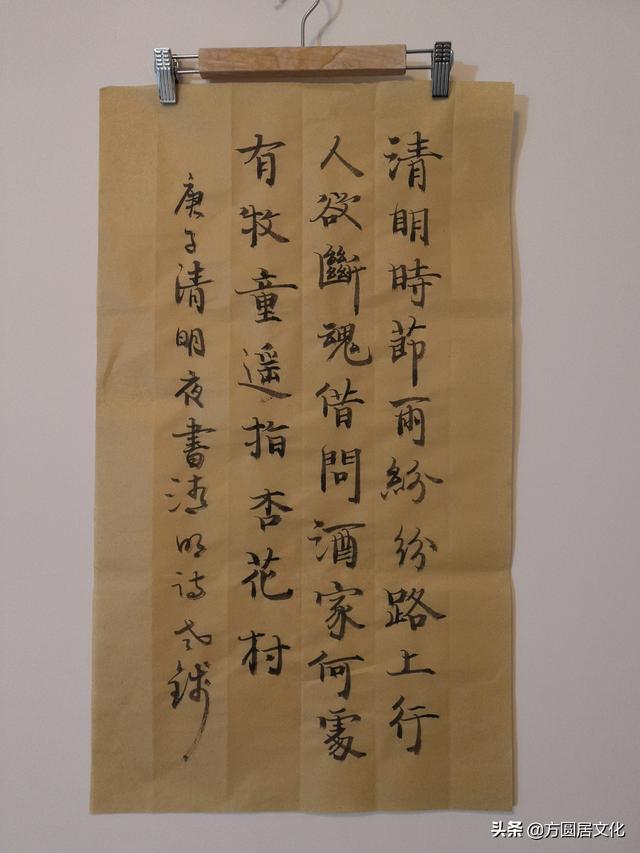 清明時節雨紛紛路上行
人欲斷魂借問酒家何處
有牧童遥指杏花村
庚子清明夜書清明诗
头条 @方圆居文化